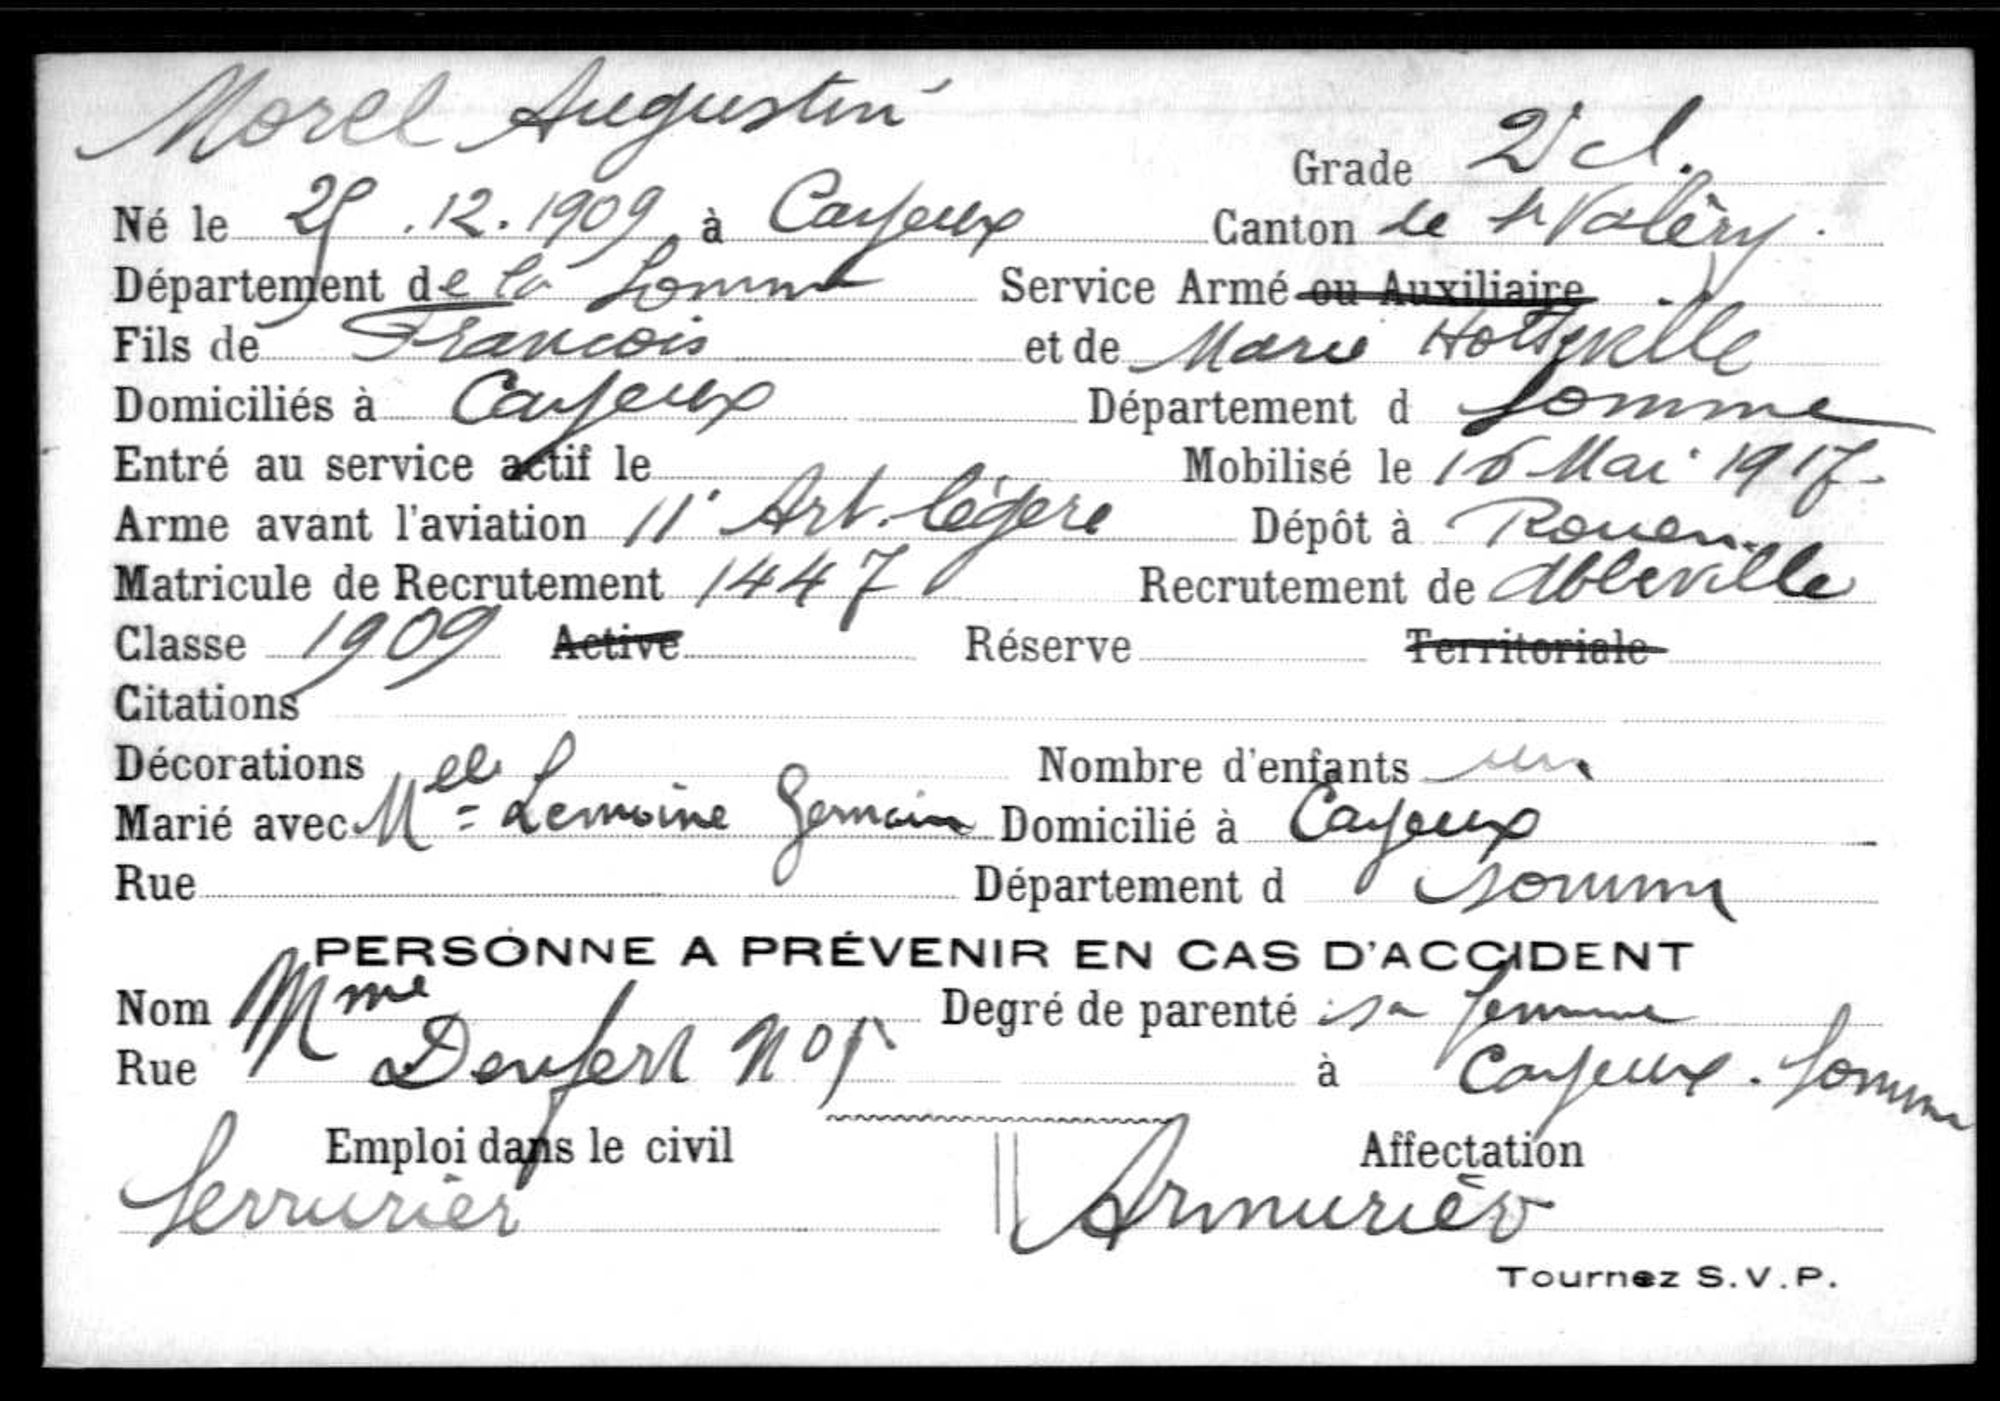 Morel Augustin
Grade 2e cl.
Né le 25.12.1909 à Cayeux Canton de St Valéry.
Département de la Somme Service Armé ou Auxiliaire
Fils de Francois et de Marie
Domiciliés à Cayeux Département d Somme
Entré au service actif le Mobilisé le 16 Mai 1917
Arme avant l'aviation 11e Art. légère Dépôt à Rouen
Matricule de Recrutement 1447 Recrutement de Abbeville
Classe 1909 Active Réserve Territoriale
Citations
Décorations Nombre d'enfants un
Marié avec Melle Lemoine Germain Domicilié à Cayeux
Rue Département d Somme
PERSONNE A PRÉVENIR EN CAS D'ACCIDENT
Nom Mme Degré de parenté sa femme
Rue Denfert No à Cayeux. Somme
Emploi dans le civil Affectation
Serrurier Armurier
Tournez S.V.P.